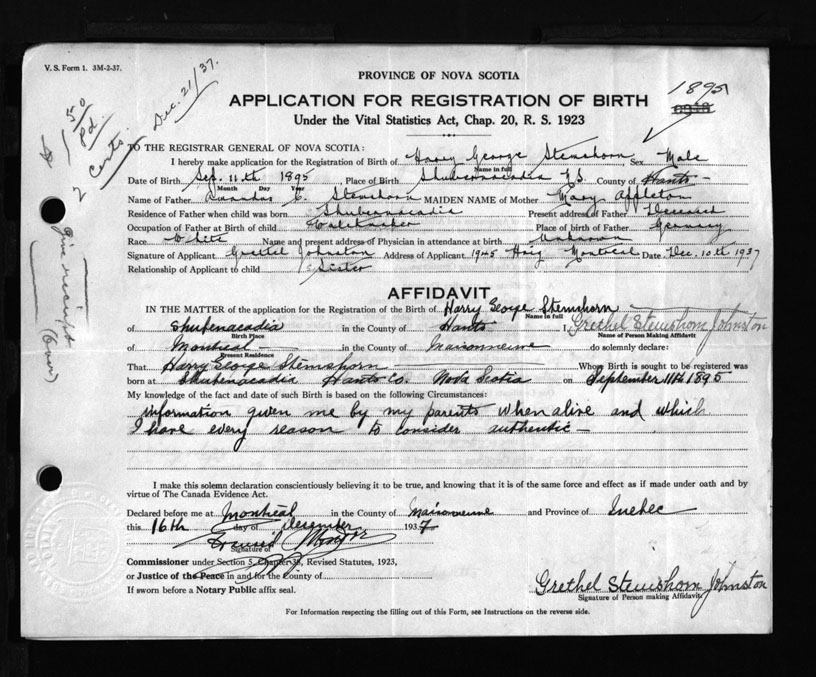 V. S. Form 1. 3M-2-37.
Dec. 21/37.
1 50
Pd.
2 Certs.
Give receipt
(Over)
1895
PROVINCE OF NOVA SCOTIA
APPLICATION FOR REGISTRATION OF BIRTH
Under the Vital Statistics Act, Chap. 20, R. S. 1923
TO THE REGISTRAR GENERAL OF NOVA SCOTIA:
I hereby make application for the Registration of Birth of Harry George Stemshorn Sex Male
Name in full
Date of Birth Sep. 11th 1895 Place of Birth Shubenacadia N.S. County of Hants
Month Day Year
Name of Father C. Stemshorn MAIDEN NAME of Mother Mary Appleton
Residence of Father when child was born Shubenacadia Present address of Father Deceased
Occupation of Father at Birth of child Place of birth of Father Germany
Race White Name and present address of Physician in attendance at birth Unknown
Signature of Applicant Grethel Johnston Address of Applicant 1945 Haig Montreal Date Dec. 10th 1937
Relationship of Applicant to child Sister
AFFIDAVIT
IN THE MATTER of the application for Registration of the Birth of Harry George Stemshorn
Name in full
of Shubenacadia in the County of Hants I, Grethel Stemshorn Johnston
Birth Place Name of Person making Affidavit
of Montreal in the County of Maisonneuve do solemnly declare:
Present Residence
That Harry George Stemshorn Whose Birth is sought to be registered was
born at Shubenacadia Hants Co. Nova Scotia on September 11th 1895
My knowledge of the fact and date of such Birth is based on the following Circumstances:
information given me by my parents when alive and which
I have every reason to consider authentic
I make this solemn declaration conscientiously believing it to be true, and knowing that it is of the same force and effect as if made under oath and by
virtue of The Canada Evidence Act.
Declared before me at Montreal in the County of Maisonneuve and Province of Quebec
this 16th day of december 1937
Signature of
Commissioner under Section 5, Chapter 38, Revised Statutes, 1923,
or Justice of the Peace in and for the County of
If sworn before a Notary Public affix seal.
Grethel Stemshorn Johnston
Signature of Person making Affidavit
For Information respecting the filling out of this Form, see Instructions on the reverse side.